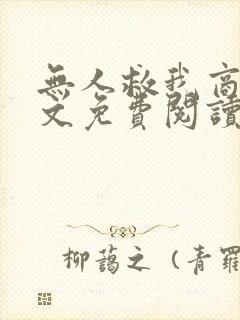 無人救我高
文免費閱讀
柳藹之（青羅